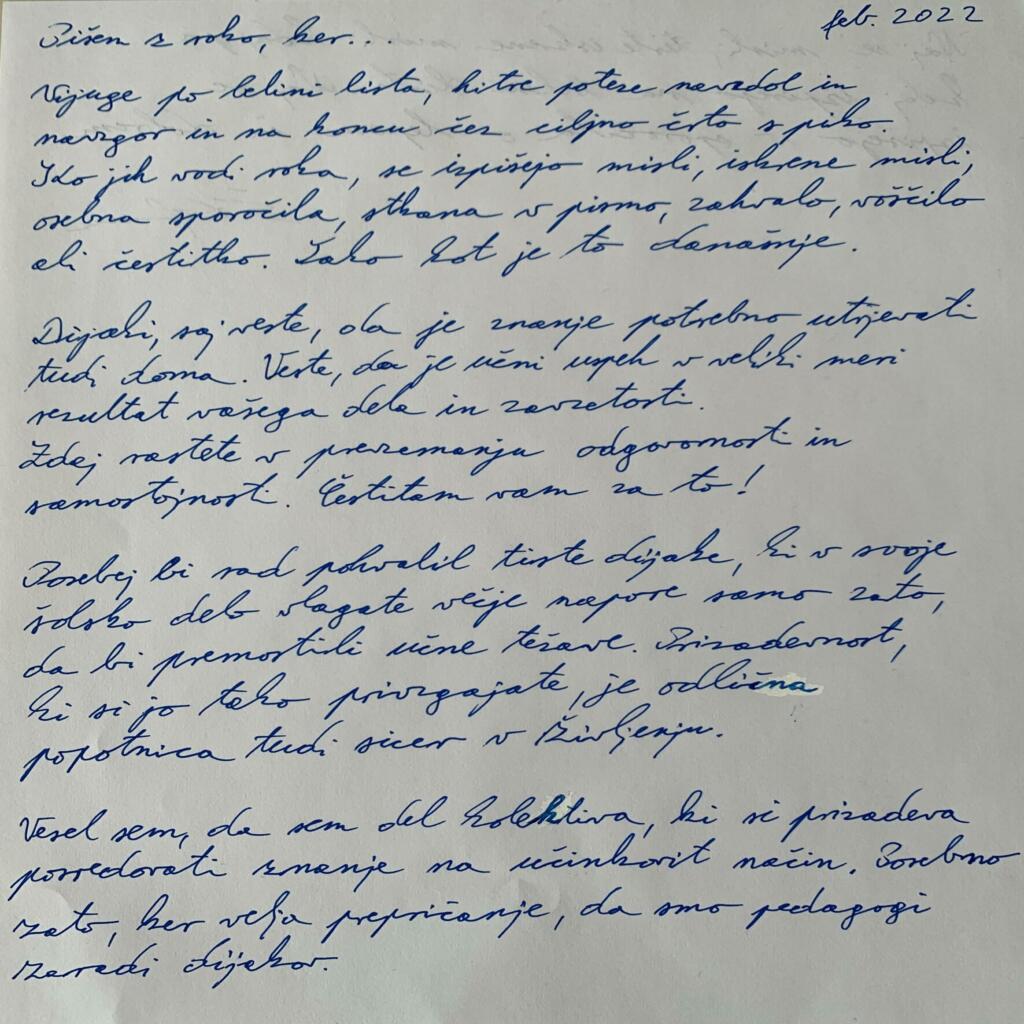 feb. 2022
Pišem z roko, ker...
Vijuge po belini lista, hitre poteze navzdol in
navzgor in na koncu čez ciljno črto s piko.
Ko jih vodi roka, se izpišejo misli, iskrene misli,
osebna sporočila, stkana v pismo, zahvalo, voščilo
ali čestitko. Tako kot je to današnje.
Dijaki, saj veste, da je znanje potrebno utrjevati
tudi doma. Veste, da je učni uspeh v veliki meri
rezultat vašega dela in zavzetosti.
Zdaj rastete v prevzemanju odgovornosti in
samostojnosti. Čestitam vam za to!
Posebej bi rad pohvalil tiste dijake, ki v svoje
šolsko delo vlagate večje napore samo zato,
da bi premostili učne težave. Prizadevnost,
ki si jo tako privzgajate, je odlična
popotnica tudi sicer v življenju.
Vesel sem, da sem del kolektiva, ki si prizadeva
posredovati znanje na učinkovit način. Posebno
zato, ker velja prepričanje, da smo pedagogi
zaradi dijakov.